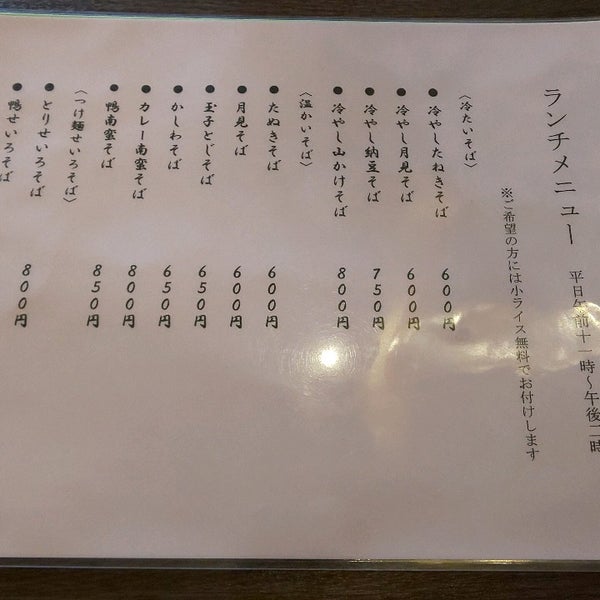 ランチメニュー 平日午前十一時～午後二時
※ご希望の方には小ライス無料でお付けします
〈冷たいそば〉
●冷やしたねきそば 600円
●冷やし月見そば 600円
●冷やし納豆そば 750円
●冷やし山かけそば 800円
〈温かいそば〉
●たぬきそば 600円
●月見そば 600円
●玉子とじそば 650円
●かしわそば 650円
●カレー南蛮そば 800円
●鴨南蛮そば 850円
〈つけ麺せいろそば〉
●とりせいろそば 800円
●鴨せいろそば